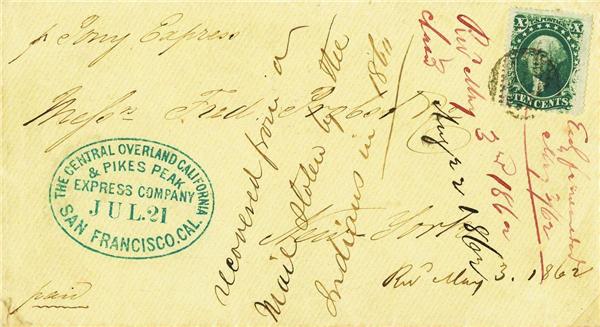 p Pony Express
Messrs Fred Probst & Co
New York
paid
THE CENTRAL OVERLAND CALIFORNIA
& PIKES PEAK
EXPRESS COMPANY
JUL. 21
SAN FRANCISCO, CAL.
recovered from a
Mail stolen by the
Indians in 1860
Rec May
3rd 1862
May 2 1862
Rec May 3. 1862
X X
U.S. POSTAGE
TEN CENTS